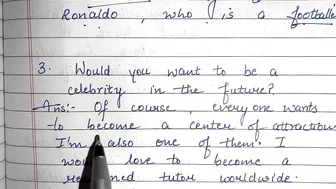 Ronaldo, who is a footballe
3. Would you want to be a
celebrity in the future?
Ans:- Of course, everyone wants
to become a center of attractions
I'm also one of them. I
would love to become a
tutor worldwide.